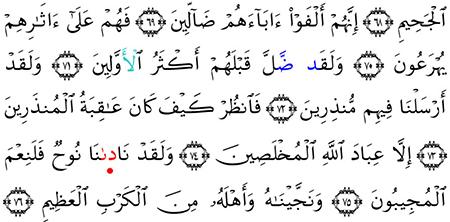 ٱلْجَحِيمِ ﴿٦٨﴾ إِنَّهُمْ أَلْفَوْا۟ ءَابَآءَهُمْ ضَآلِّينَ ﴿٦٩﴾ فَهُمْ عَلَىٰٓ ءَاثَٰرِهِمْ
يُهْرَعُونَ ﴿٧٠﴾ وَلَقَد ضَّلَّ قَبْلَهُمْ أَكْثَرُ ٱلْأَوَّلِينَ ﴿٧١﴾ وَلَقَدْ
أَرْسَلْنَا فِيهِم مُّنذِرِينَ ﴿٧٢﴾ فَٱنظُرْ كَيْفَ كَانَ عَٰقِبَةُ ٱلْمُنذَرِينَ
﴿٧٣﴾ إِلَّا عِبَادَ ٱللَّهِ ٱلْمُخْلَصِينَ ﴿٧٤﴾ وَلَقَدْ نَادَىٰنَا نُوحٌ فَلَنِعْمَ
ٱلْمُجِيبُونَ ﴿٧٥﴾ وَنَجَّيْنَٰهُ وَأَهْلَهُۥ مِنَ ٱلْكَرْبِ ٱلْعَظِيمِ ﴿٧٦﴾